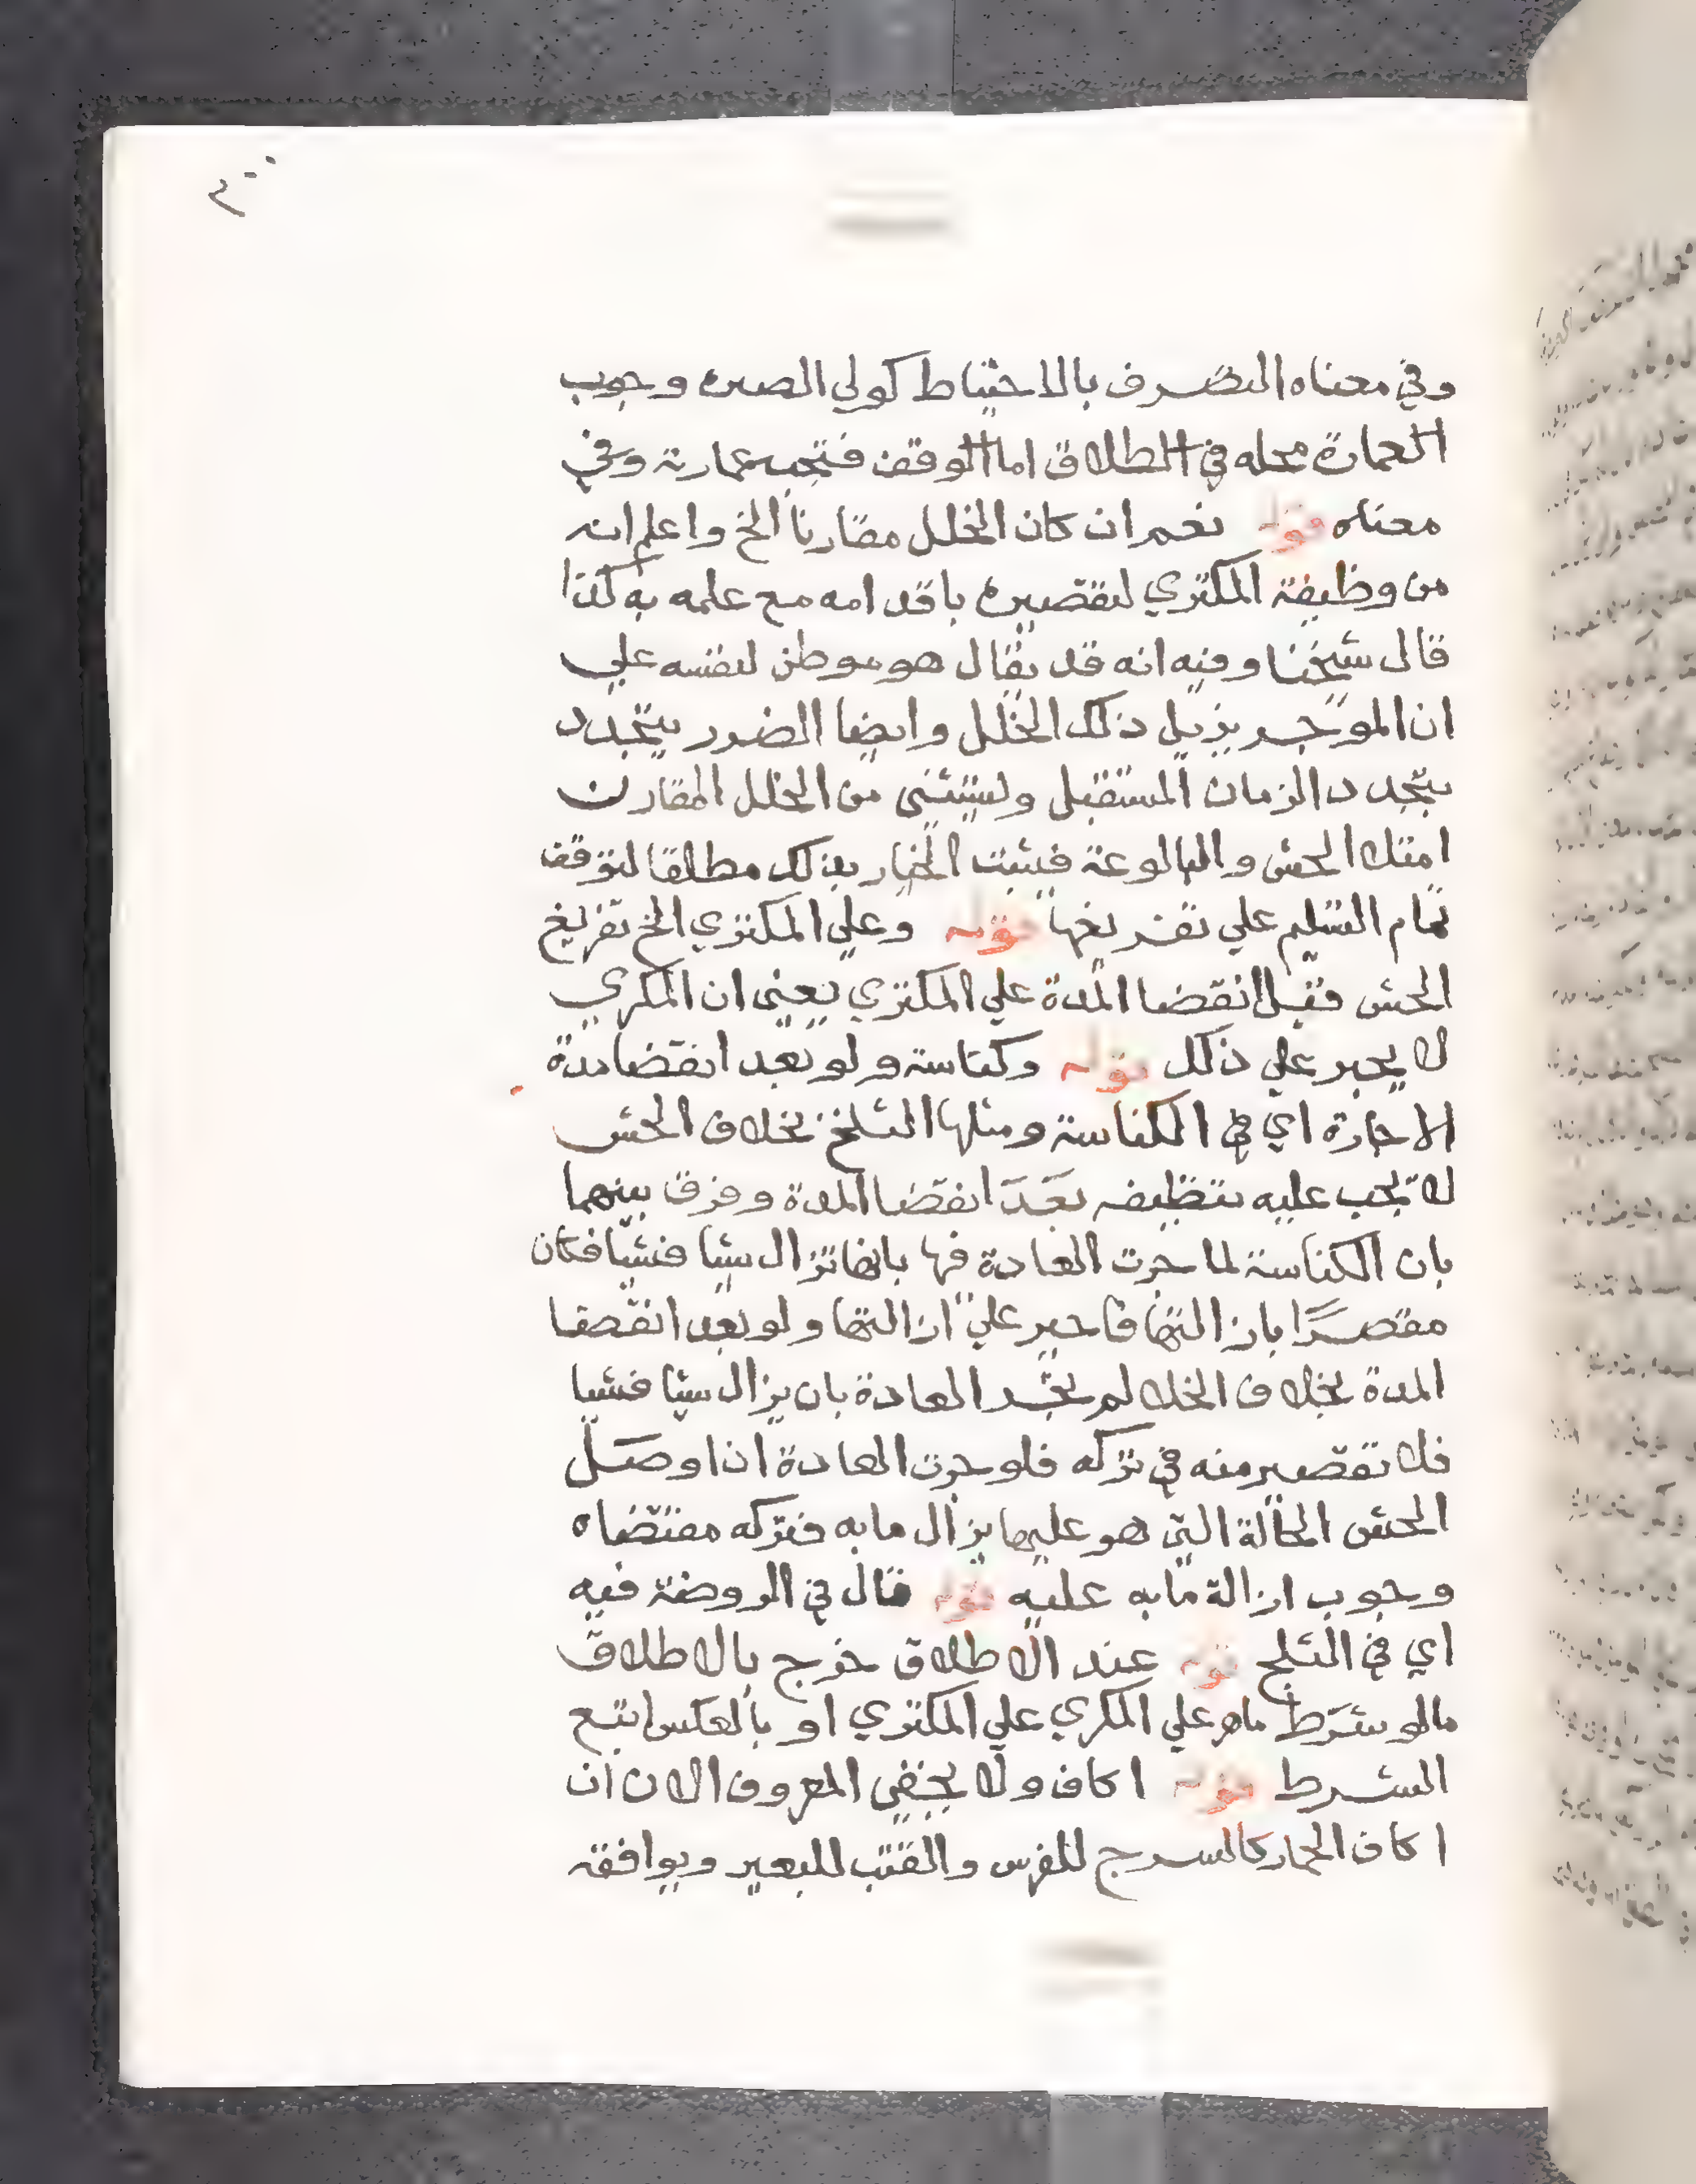 ٣٠٠
وفي معناه التصرف بالاحتياط كولي الصبى وجوب
العمارة محله في الطلاق اما الوقف فتجب عمارته وفي
معناه قوله نعم ان كان الخلل مقارنا الخ واعلم انه
من وظيفة المكتري لتقصيره باقدامه مع علمه به كذا
قال شيخنا وفيه انه قد يقال هو موطن لنفسه علي
ان الموجر يزيل ذلك الخلل وايضا الضرر يتجدد
بتجدد الزمان المستقبل ويستثنى من الخلل المقارن
امتلا الحش والبالوعة فيثبت الخيار بذلك مطلقا لتوقف
تمام التسليم علي تفريغها قوله وعلي المكتري الخ تفريغ
الحش قبل انقضا المدة علي المكتري يعني ان المكري
لا يجبر علي ذلك قوله وكناسة ولو بعد انقضا مدة
الاجارة اي في الكناسة ومثلها الثلج بخلاف الحش
لا يجب عليه تنظيفه بعد انقضا المدة وفرق بينهما
بان الكناسة لما جرت العادة فيها بانها تزال شيا فشيا فكان
مقصرًا بازالتها فاجبر علي ازالتها ولو بعد انقضا
المدة بخلاف الخلا لم تجر العادة بان يزال شيا فشيا
فلا تقصير منه في تركه فلو جرت العادة اذا وصل
الحش الحالة التي هو عليها يزال ما به فتركه مقتضاه
وجوب ازالة ما به عليه قوله قال في الروضة فيه
اي في الثلج قوله عند الاطلاق خرج بالاطلاق
مالو شرط ماهو علي المكري علي المكتري او بالعكس اتبع
الشرط قوله اكاف ولا يخفي المعروف الان ان
اكاف الحمار كالسرج للفرس والقتب للبعير ويوافقه